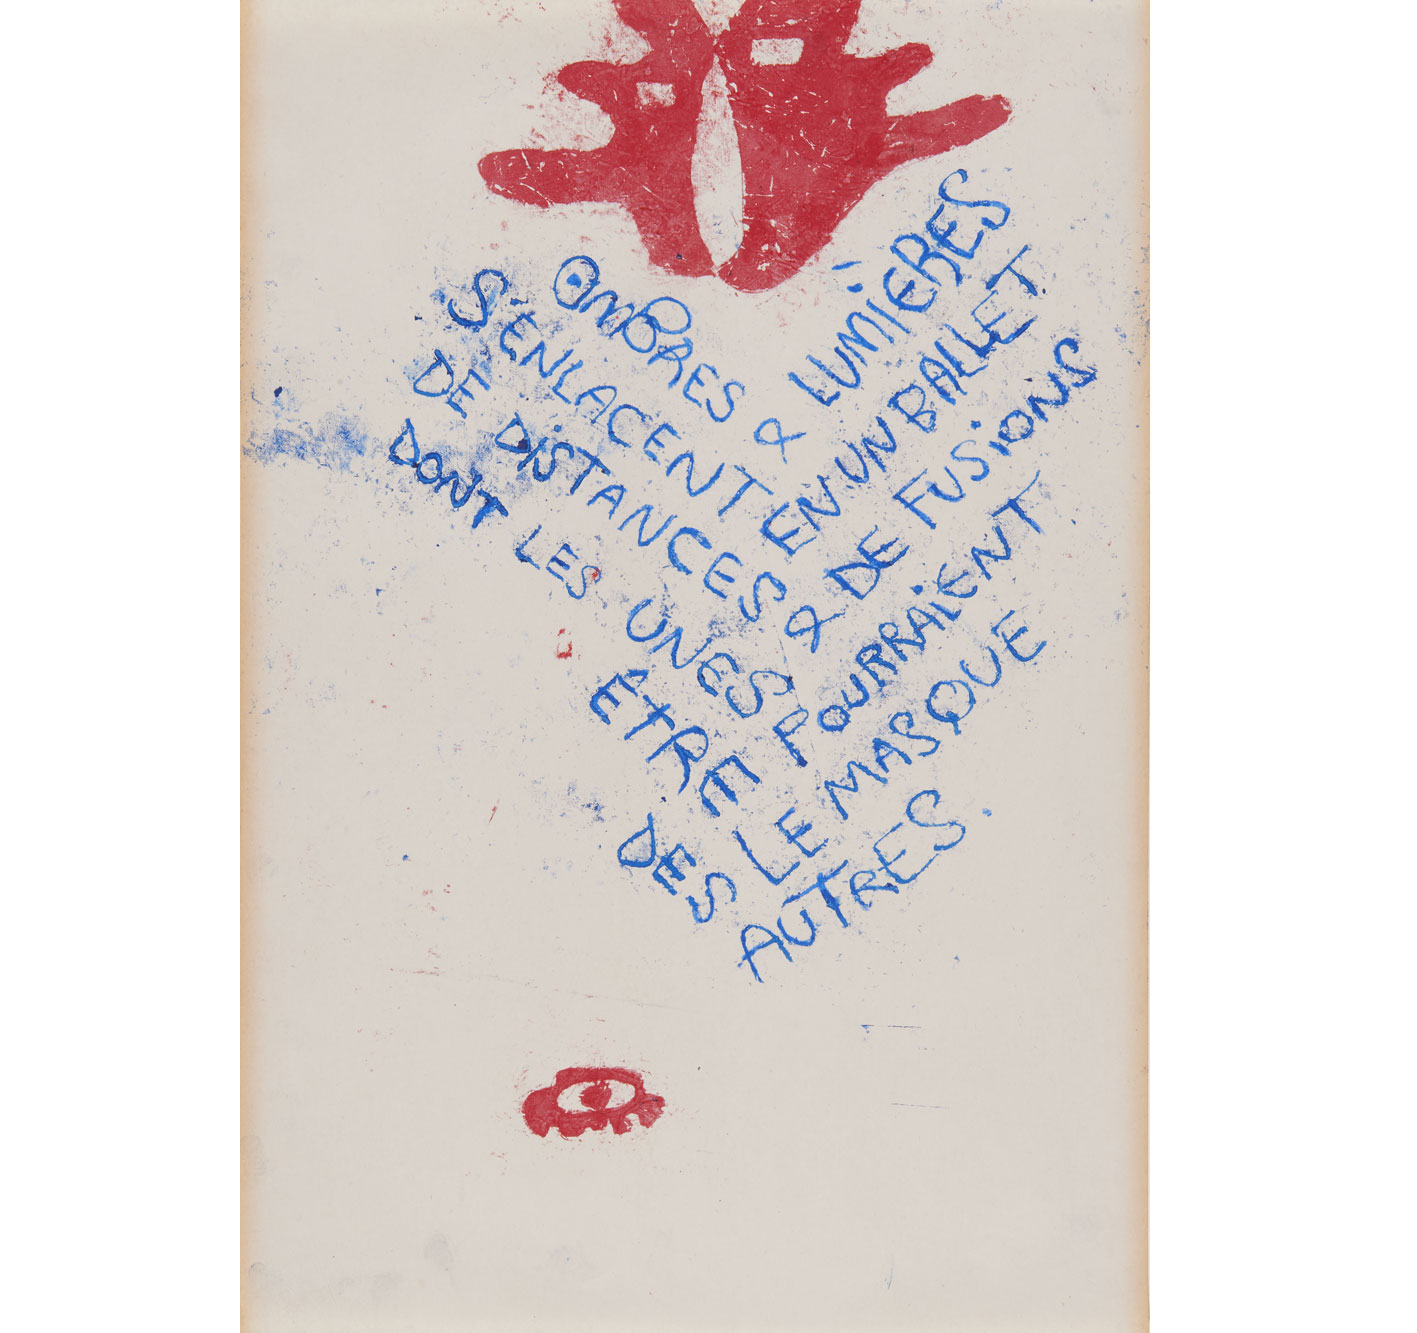 OMBRES & LUMIÈRES
S'ENLACENT EN UN BALLET
DE DISTANCES & DE FUSIONS
DONT LES UNES POURRAIENT
ÊTRE LE MASQUE
DES AUTRES.